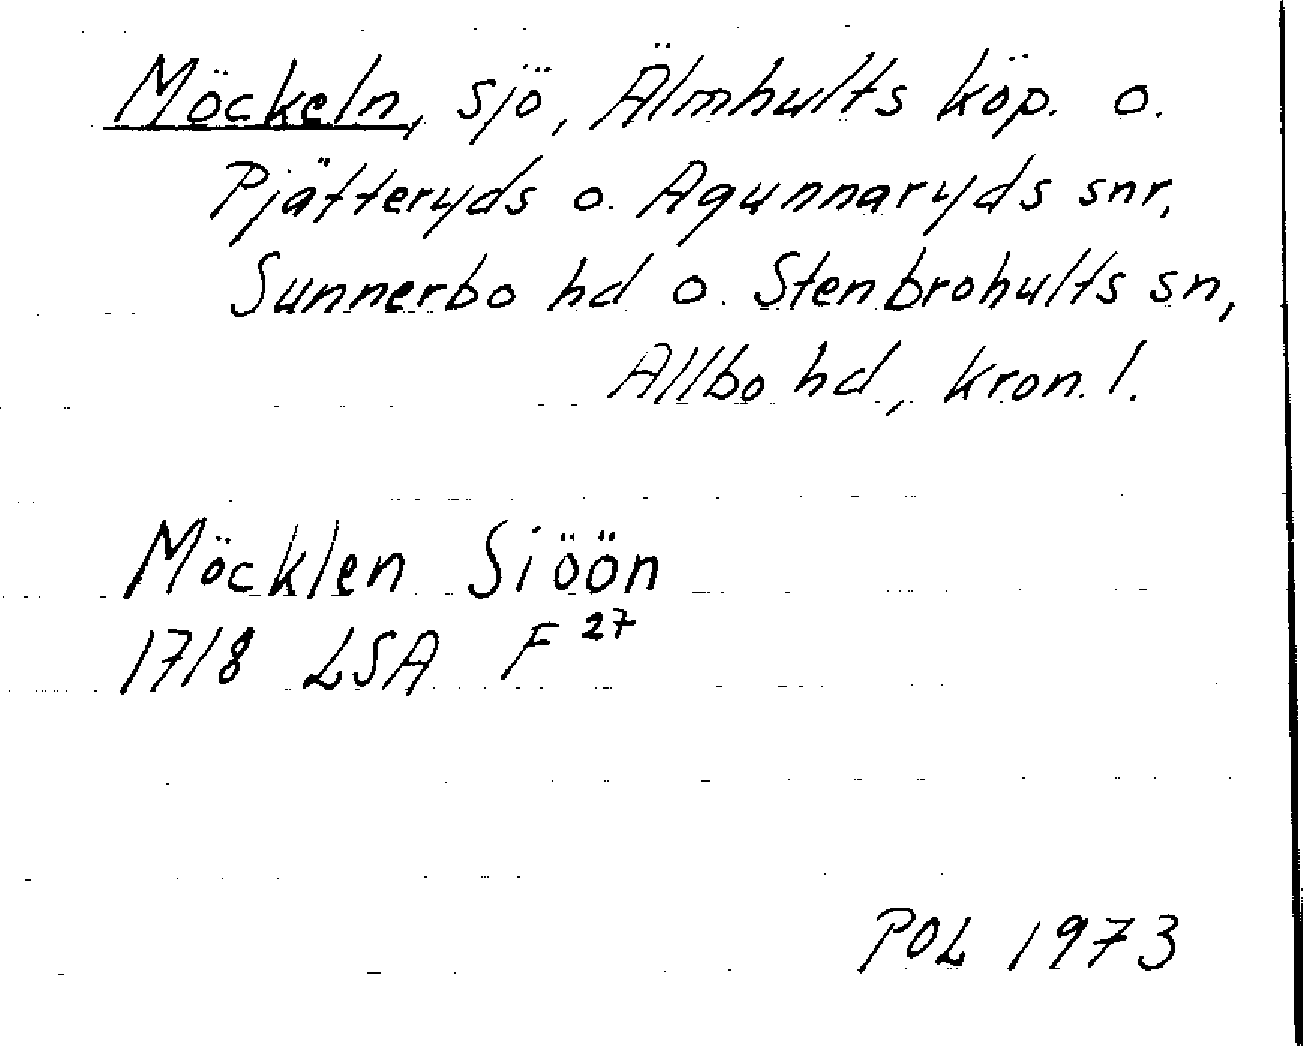 Möckeln, sjö, Älmhults köp. o.
Pjätteryds o. Agunnaryds snr,
Sunnerbo hd o. Stenbrohults sn,
Allbo hd, kron. l.
Möcklen Siöön
1718 LSA F 27
POL 1973